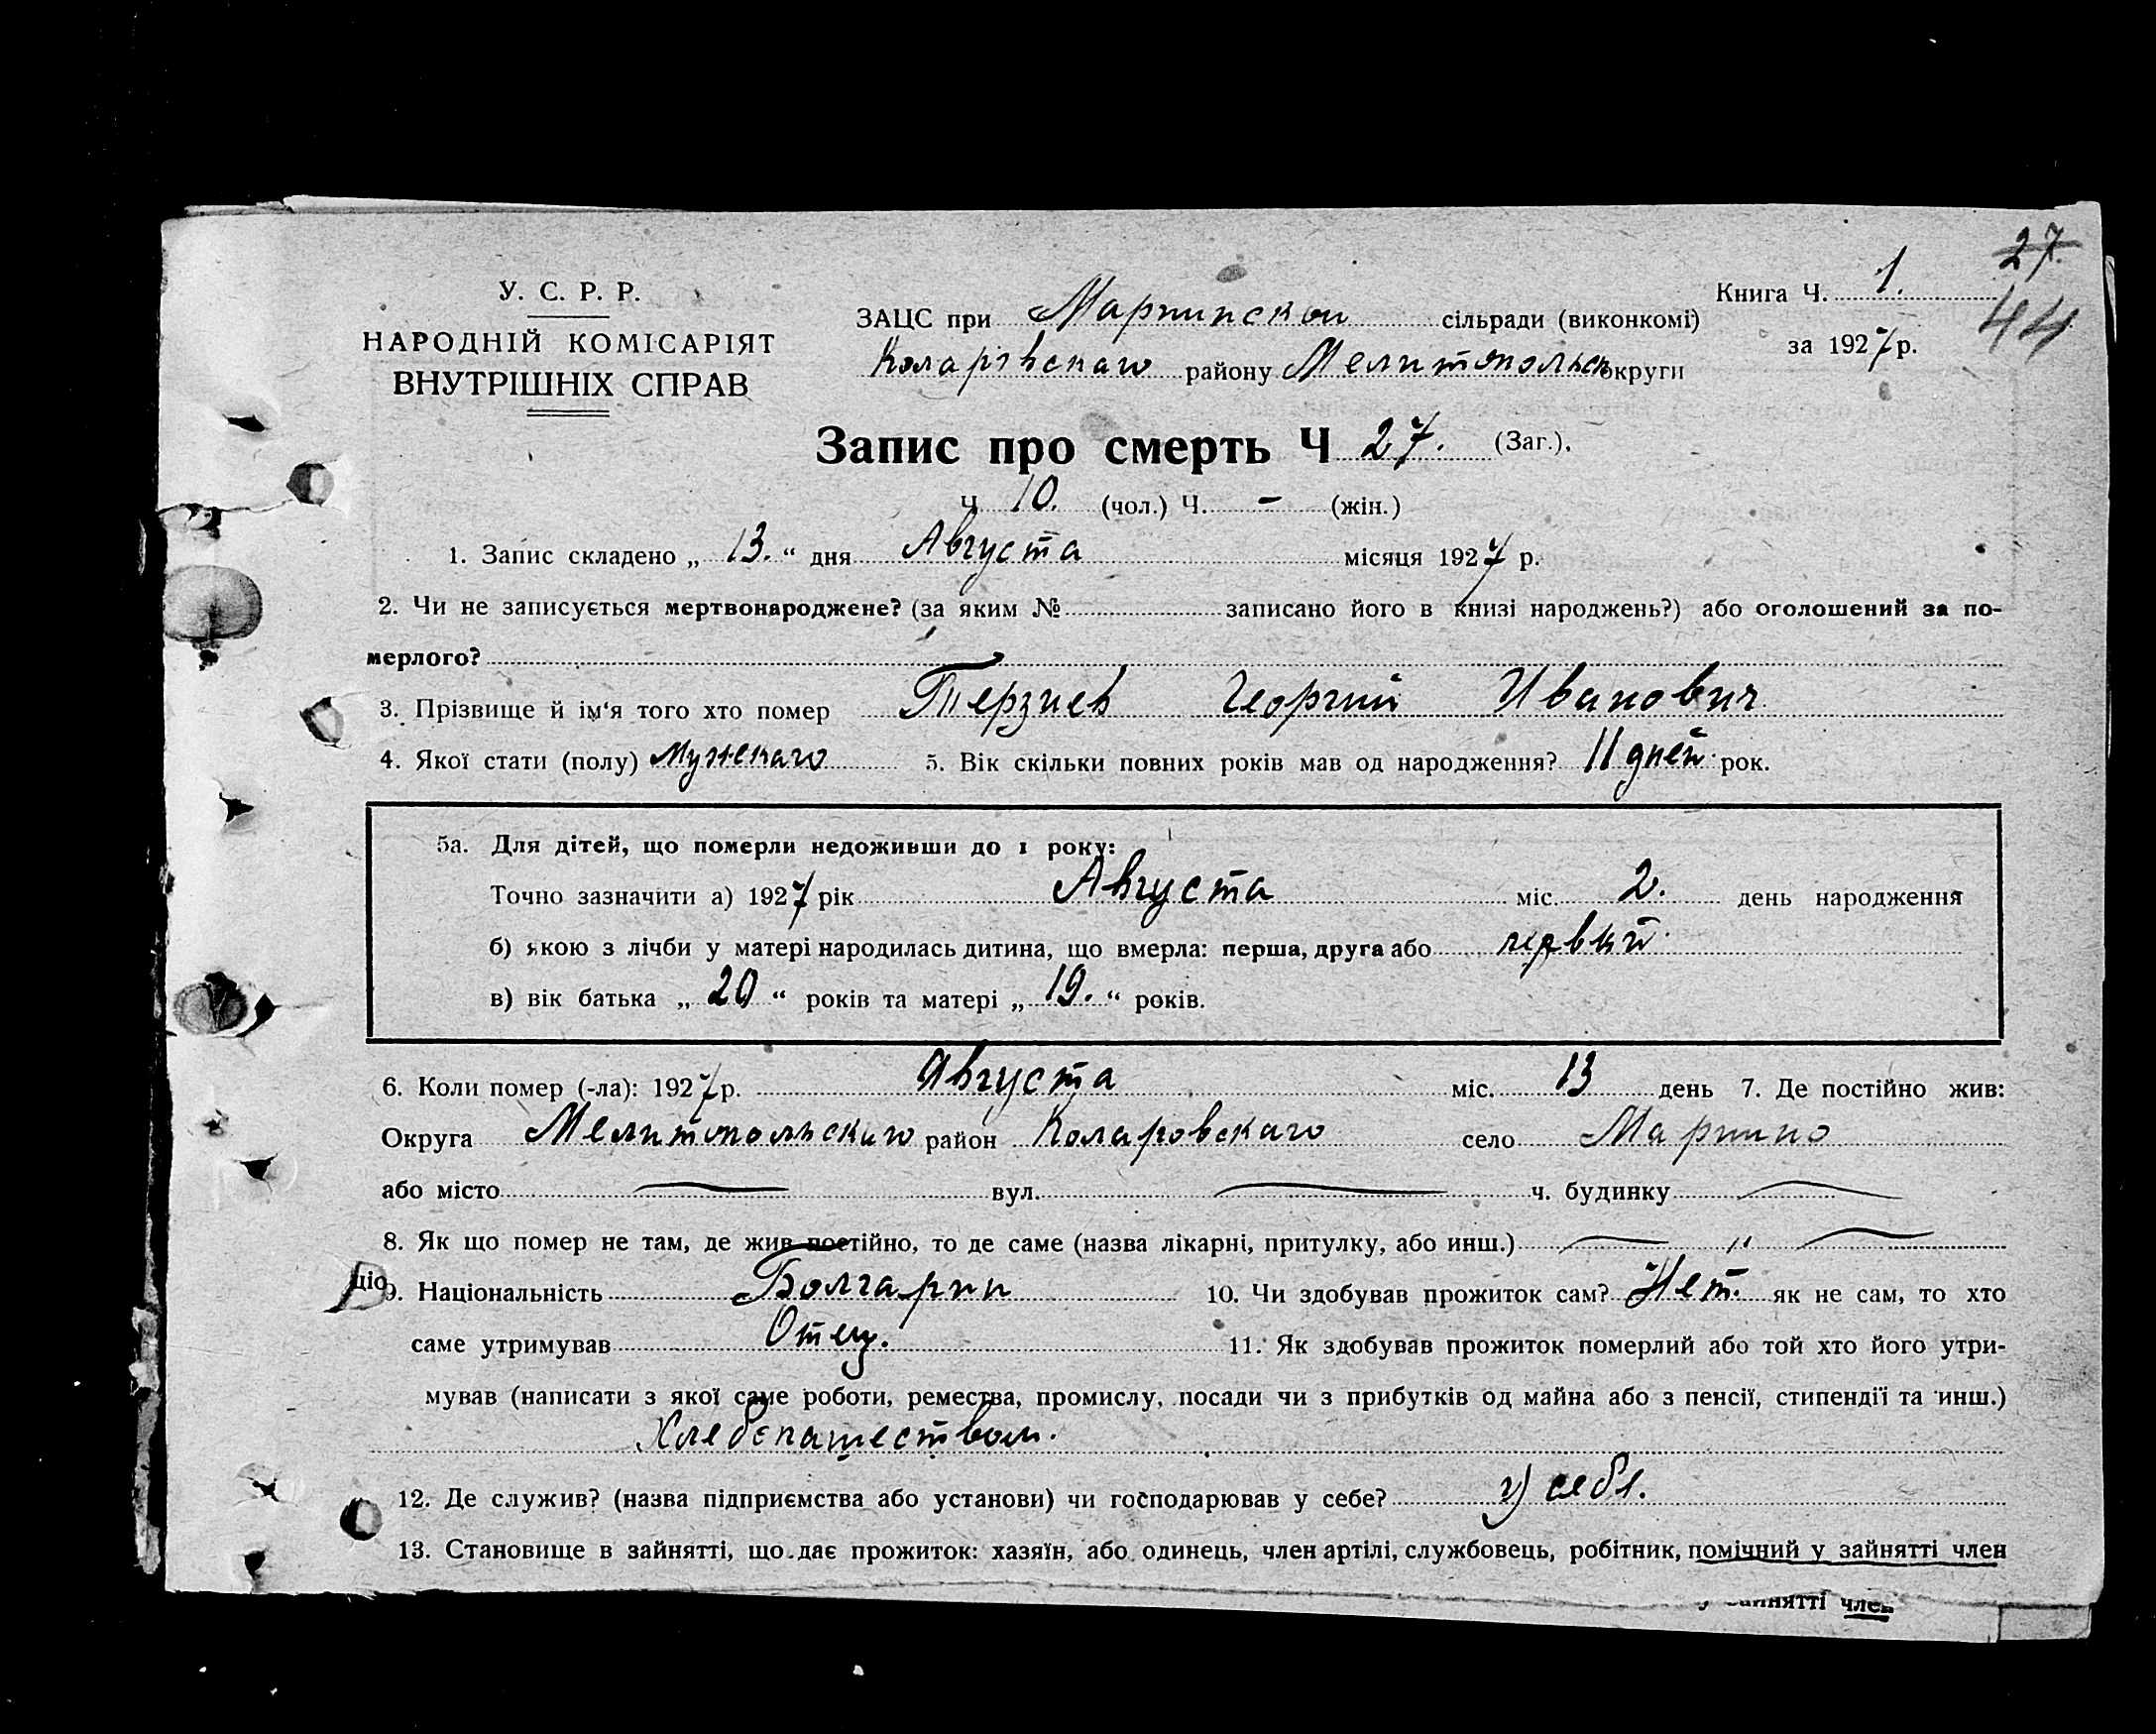 27.
44
У. С. Р. Р.
НАРОДНІЙ КОМІСАРІЯТ
ВНУТРІШНІХ СПРАВ
ЗАЦС при Мариинской сільради (виконкомі)
Коларовскаго району Мелитопольск округи
Книга Ч. 1.
за 1927 р.
Запис про смерть Ч 27. (Заг.).
Ч. 10. (чол.) Ч. - (жін.)
1. Запис складено „ 13. “ дня Августа місяця 1927 р.
2. Чи не записується мертвонароджене? (за яким № записано його в книзі народжень?) або оголошений за по-
мерлого?
3. Прізвище й ім'я того хто помер Терзиев Георгий Иванович
4. Якої стати (полу) Мужскаго 5. Вік скільки повних років мав од народження? 11 дней рок.
5а. Для дітей, що померли недоживши до 1 року:
Точно зазначити а) 1927 рік Августа міс. 2. день народження
б) якою з лічби у матері народилась дитина, що вмерла: перша, друга або первий
в) вік батька „ 20 “ років та матері „ 19. “ років.
6. Коли помер (-ла): 1927 р. Августа міс. 13 день 7. Де постійно жив:
Округа Мелитопольскаго район Коларовскаго село Марино
або місто — вул. — ч. будинку —
8. Як що помер не там, де жив постійно, то де саме (назва лікарні, притулку, або инш.) — " —
ціо
9. Національність Болгарин 10. Чи здобував прожиток сам? Нет. як не сам, то хто
саме утримував Отец. 11. Як здобував прожиток померлий або той хто його утри-
мував (написати з якої саме роботи, ремества, промислу, посади чи з прибутків од майна або з пенсії, стипендії та инш.)
Хлебопашеством.
12. Де служив? (назва підприємства або установи) чи господарював у себе? у себя.
13. Становище в зайнятті, що дає прожиток: хазяїн, або одинець, член артілі, службовець, робітник, помічний у зайнятті член
у зайнятті член